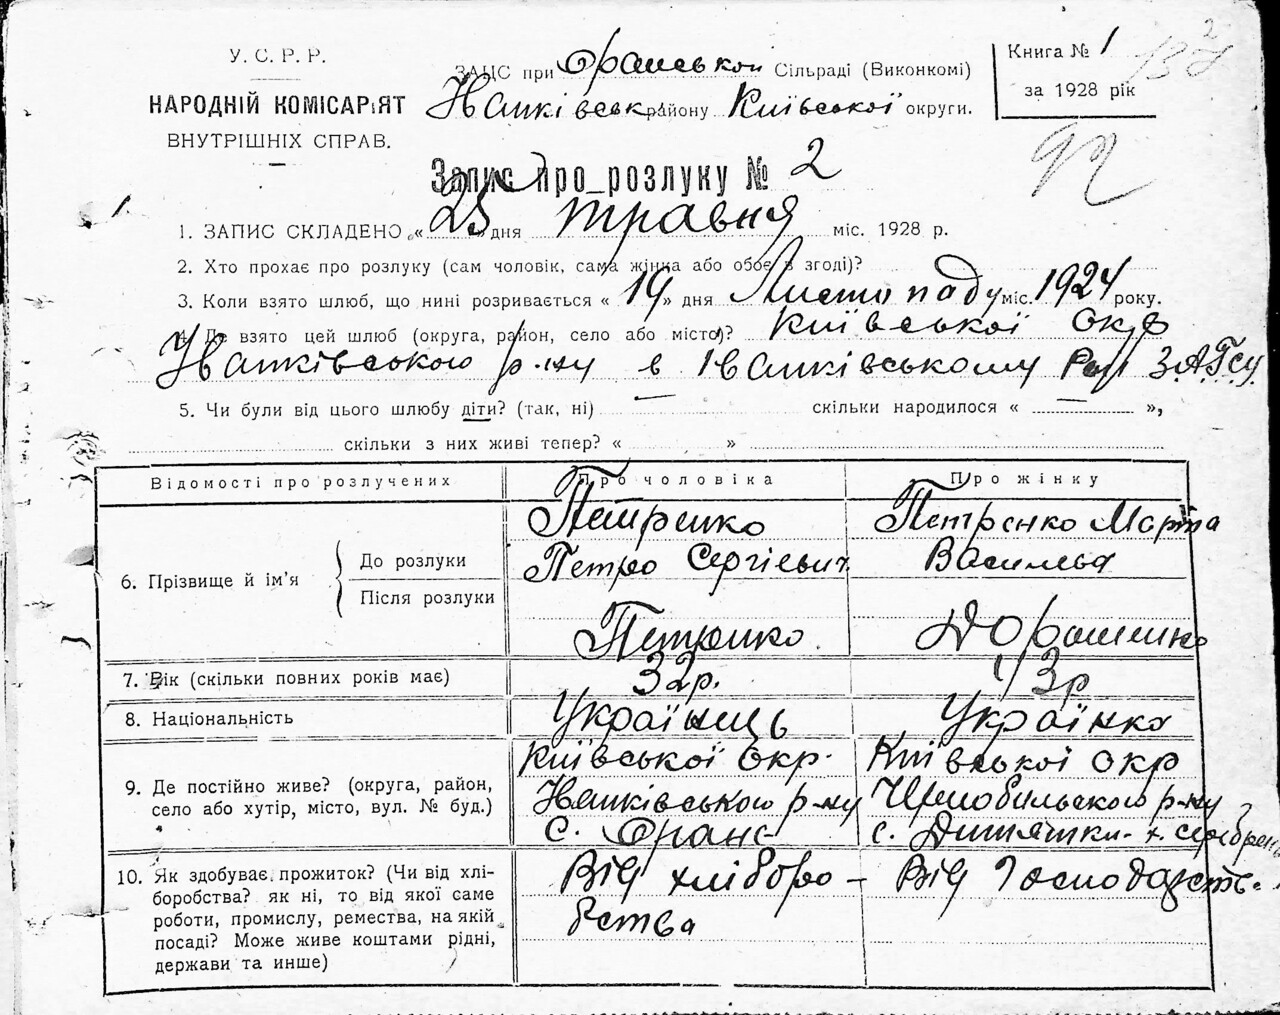 У. С. Р. Р.
НАРОДНІЙ КОМІСАРІЯТ
ВНУТРІШНІХ СПРАВ.
ЗАЦС при Оранській Сільраді (Виконкомі)
району Київської округи.
Книга № 1
за 1928 рік
92
Запис про розлуку № 2
1. ЗАПИС СКЛАДЕНО „25" дня травня міс. 1928 р.
2. Хто прохає про розлуку (сам чоловік, сама жінка або обоє в згоді)?
3. Коли взято шлюб, що нині розривається « 19 » дня Листопаду міс. 1924 року.
4. Де взято цей шлюб (округа, район, село або місто)? Київської окр
р-ну в Іванківському Рай ЗАГСу
5. Чи були від цього шлюбу діти? (так, ні) — скільки народилося « — »,
скільки з них живі тепер? « »
Відомості про розлучених Про чоловіка Про жінку
6. Прізвище й ім'я
До розлуки
Після розлуки
Петренко
Петро Сергієвич
Петренко
Петренко Марія
Василів
Дорошенко
7. Вік (скільки повних років має) 32 р.
8. Національність Українець Українка
9. Де постійно живе? (округа, район,
село або хутір, місто, вул. № буд.)
Київської окр.
р-ну
с. Оране
Київської окр
Чорнобильского р-ну
с. Дитятки
10. Як здобуває прожиток? (Чи від хлі-
боробства? як ні, то від якої саме
роботи, промислу, ремества, на якій
посаді? Може живе коштами рідні,
держави та инше)
Від хліборо-
бства
Від господарств.